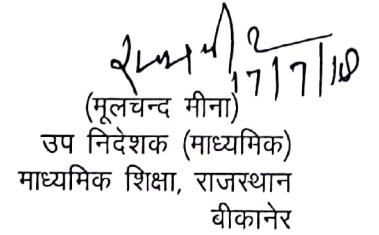 17/7/18
(मूलचन्द मीना)
उप निदेशक (माध्यमिक)
माध्यमिक शिक्षा, राजस्थान
बीकानेर